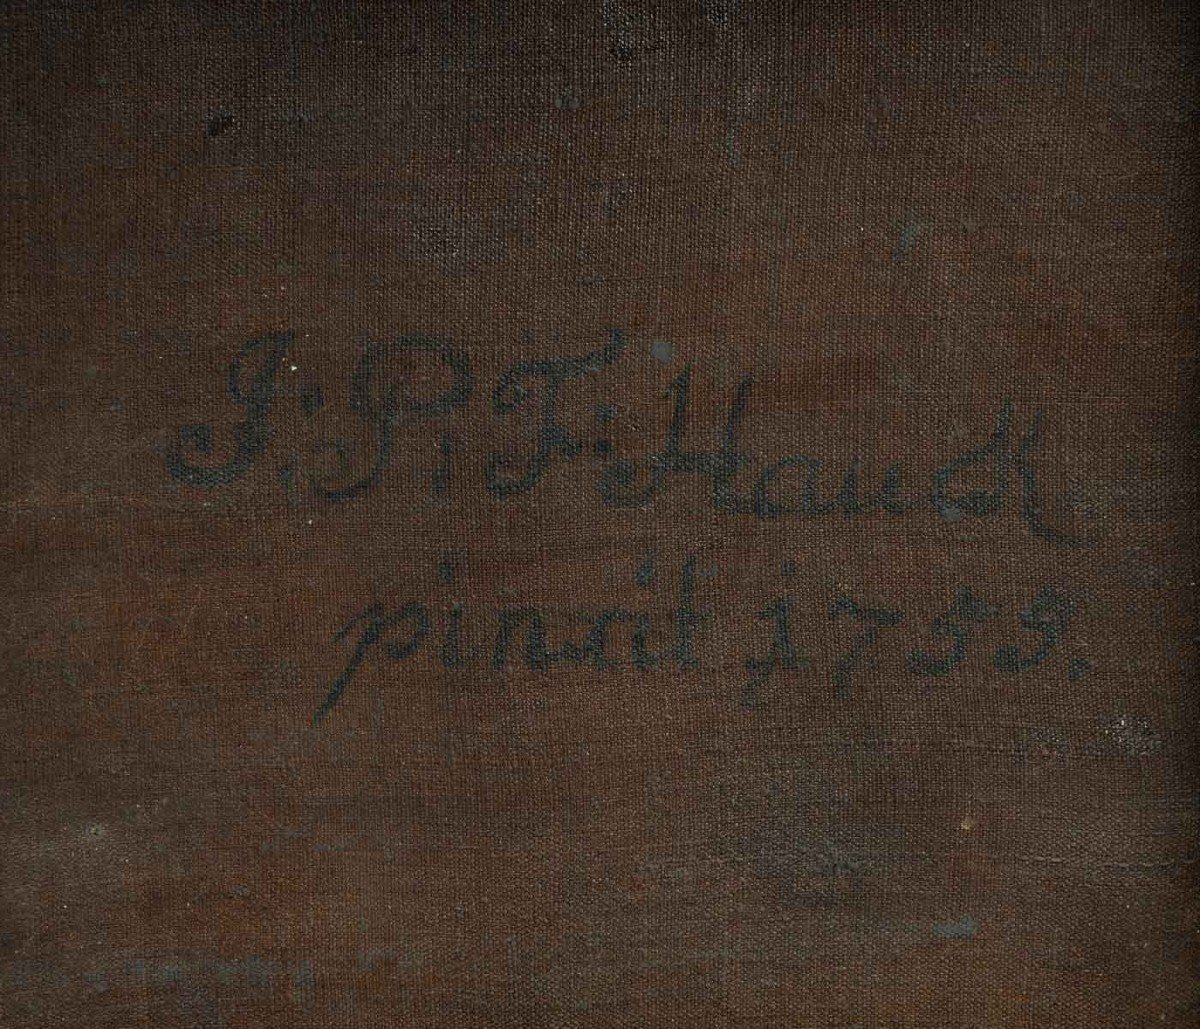 J. P. F. Hauck
pinxit 1755.